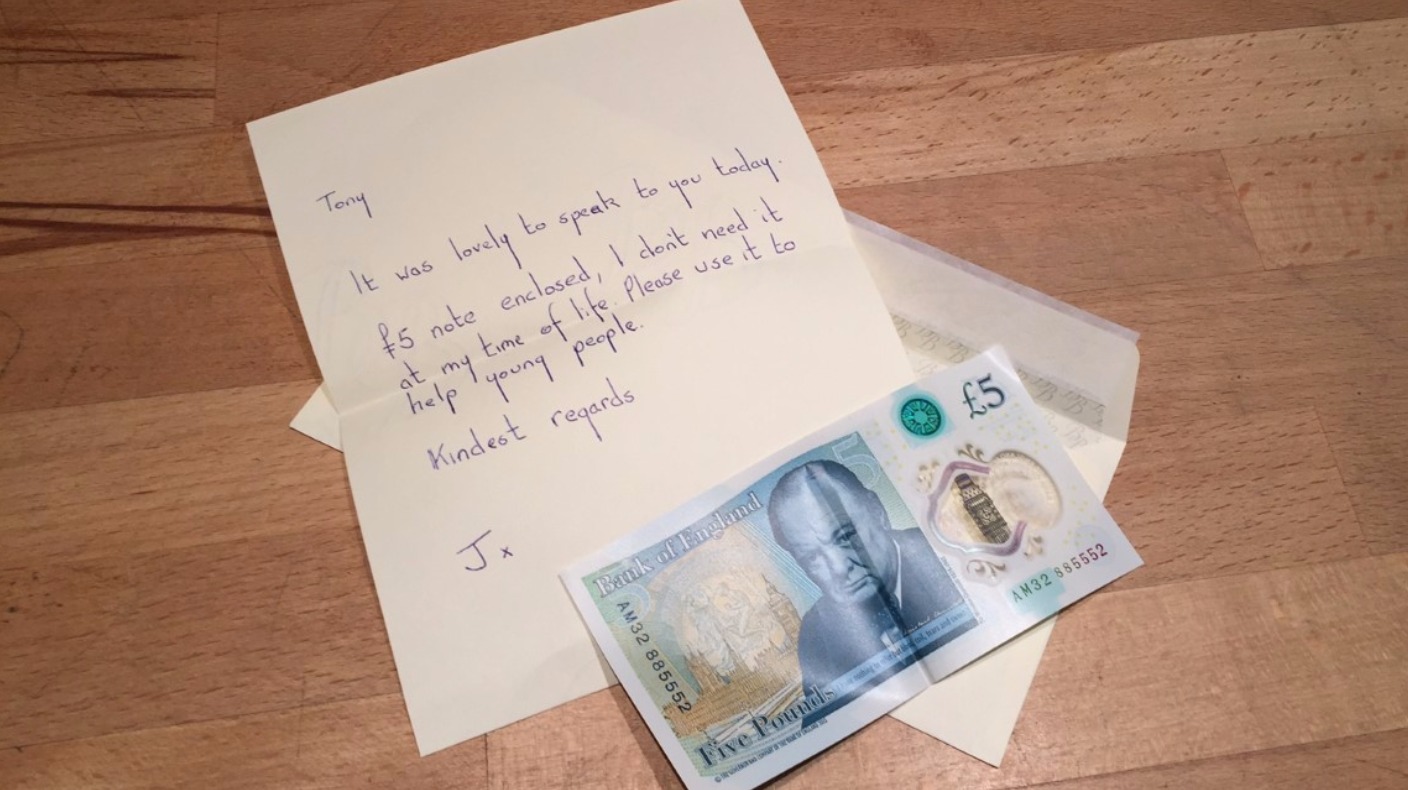 Tony
It was lovely to speak to you today.
£5 note enclosed, I don't need it
at my time of life. Please use it to
help young people.
Kindest regards
J x
£5
Bank of England
AM32 885552
AM32 885552
Five Pounds